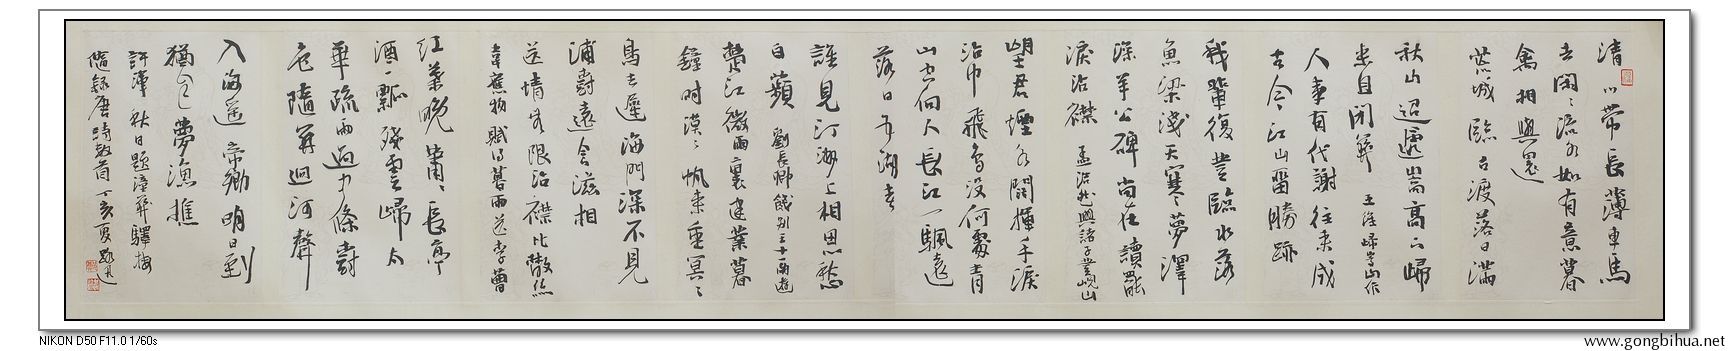 清川带長薄車馬
去閑〻流水如有意暮
禽相與還
荒城臨古渡落日滿
秋山迢遞嵩高下歸
来且閉關 王維歸嵩山作
人事有代謝往来成
古今江山留勝跡
我輩復登臨水落
魚梁淺天寒夢澤
深羊公碑尚在讀罷
淚沾襟 孟浩然與諸子登峴山
望君煙水闊揮手淚
沾巾飛鳥没何處青
山空向人長江一帆遠
落日五湖春
誰見汀洲上相思愁
白蘋 劉長卿餞别王十一南遊
楚江微雨裏建業暮
鐘時漠〻帆来重冥〻
鳥去遲海門深不見
浦樹遠含滋相
送情無限沾襟比散絲
韋應物賦得暮雨送李曹
紅葉晚蕭〻長亭
酒一瓢殘雲歸太
華疏雨過中條樹
色隨關迥河聲
入海遥帝鄉明日到
猶自夢漁樵
許渾 秋日題潼關驛樓
隨録唐詩数首丁亥夏
NIKON D50 F11.0 1/60s
www.gongbihua.net